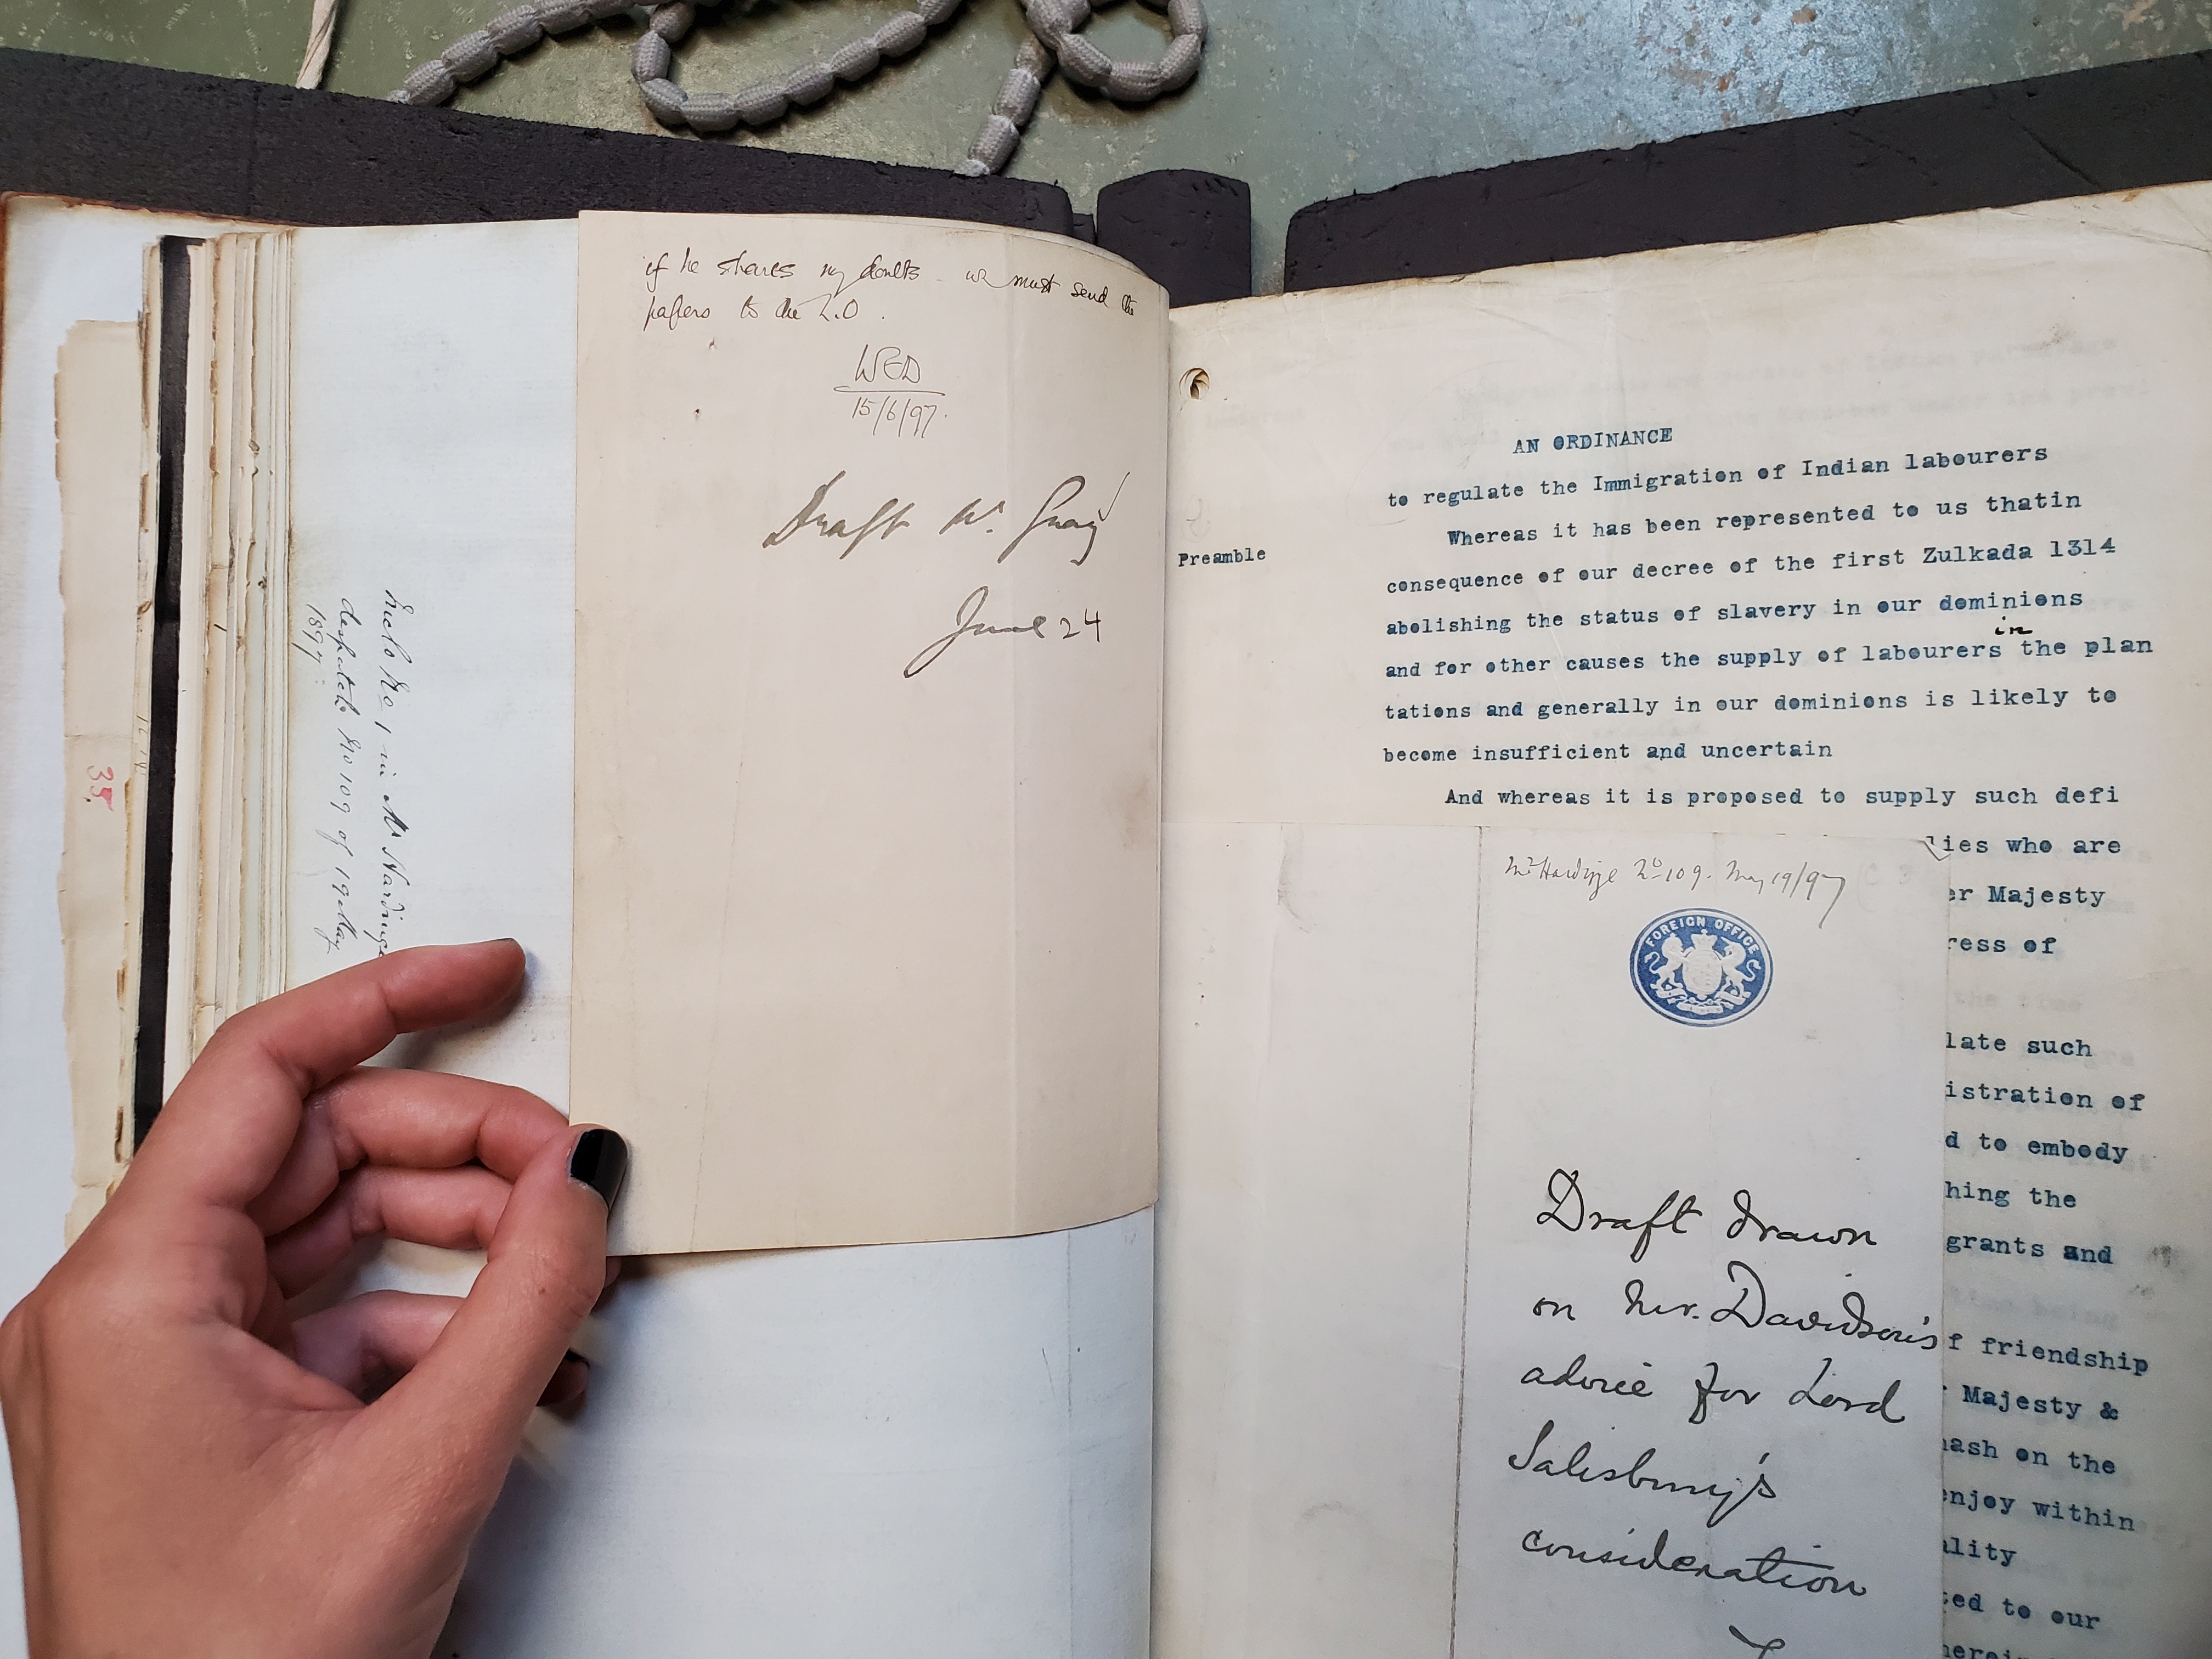 if he shares my doubts we must send the
papers to the L.O.
WED
15/6/97.
Draft Mr. Gray
June 24
Inclo No 1 in Mr Hardinge
despatch No 109 of 19 May
1897.
35.
AN ORDINANCE
to regulate the Immigration of Indian labourers
Preamble
Whereas it has been represented to us thatin
consequence of our decree of the first Zulkada 1314
abolishing the status of slavery in our dominions
in
and for other causes the supply of labourers the plan
tations and generally in our dominions is likely to
become insufficient and uncertain
And whereas it is proposed to supply such defi
lies who are
er Majesty
ress of
late such
istration of
d to embody
hing the
grants and
f friendship
Majesty &
hash on the
enjoy within
ality
ted to our
Mr Hardinge No 109. May 19/97
FOREIGN OFFICE
Draft drawn
on Mr. Davidson's
advice for Lord
Salisbury's
consideration